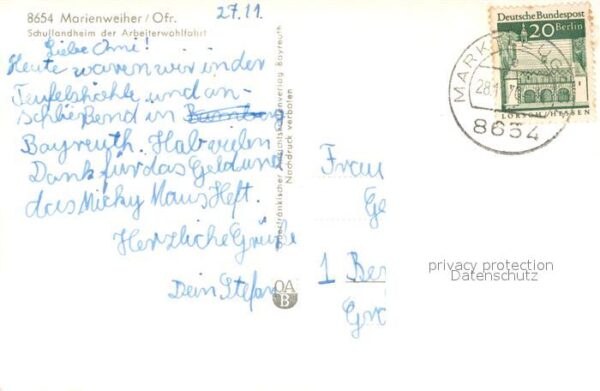 8654 Marienweiher / Ofr.
Schullandheim der Arbeiterwohlfahrt
27.11.
Liebe Omi!
Heute waren wir in der
Teufelshöhle und an-
schließend in
Bayreuth. Hab vielen
Dank für das Geld und
das Micky Maus Heft.
Herzliche Grüße
Dein Stefan
Nachdruck verboten
OA
B
Deutsche Bundespost
20 Berlin
LORSCH/HESSEN
28.1
8654
Frau
Ge
1 Ber
Gro
privacy protection
Datenschutz